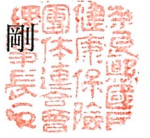 奈良縣國民
健康保險
團体連合會
理事長之印
剛